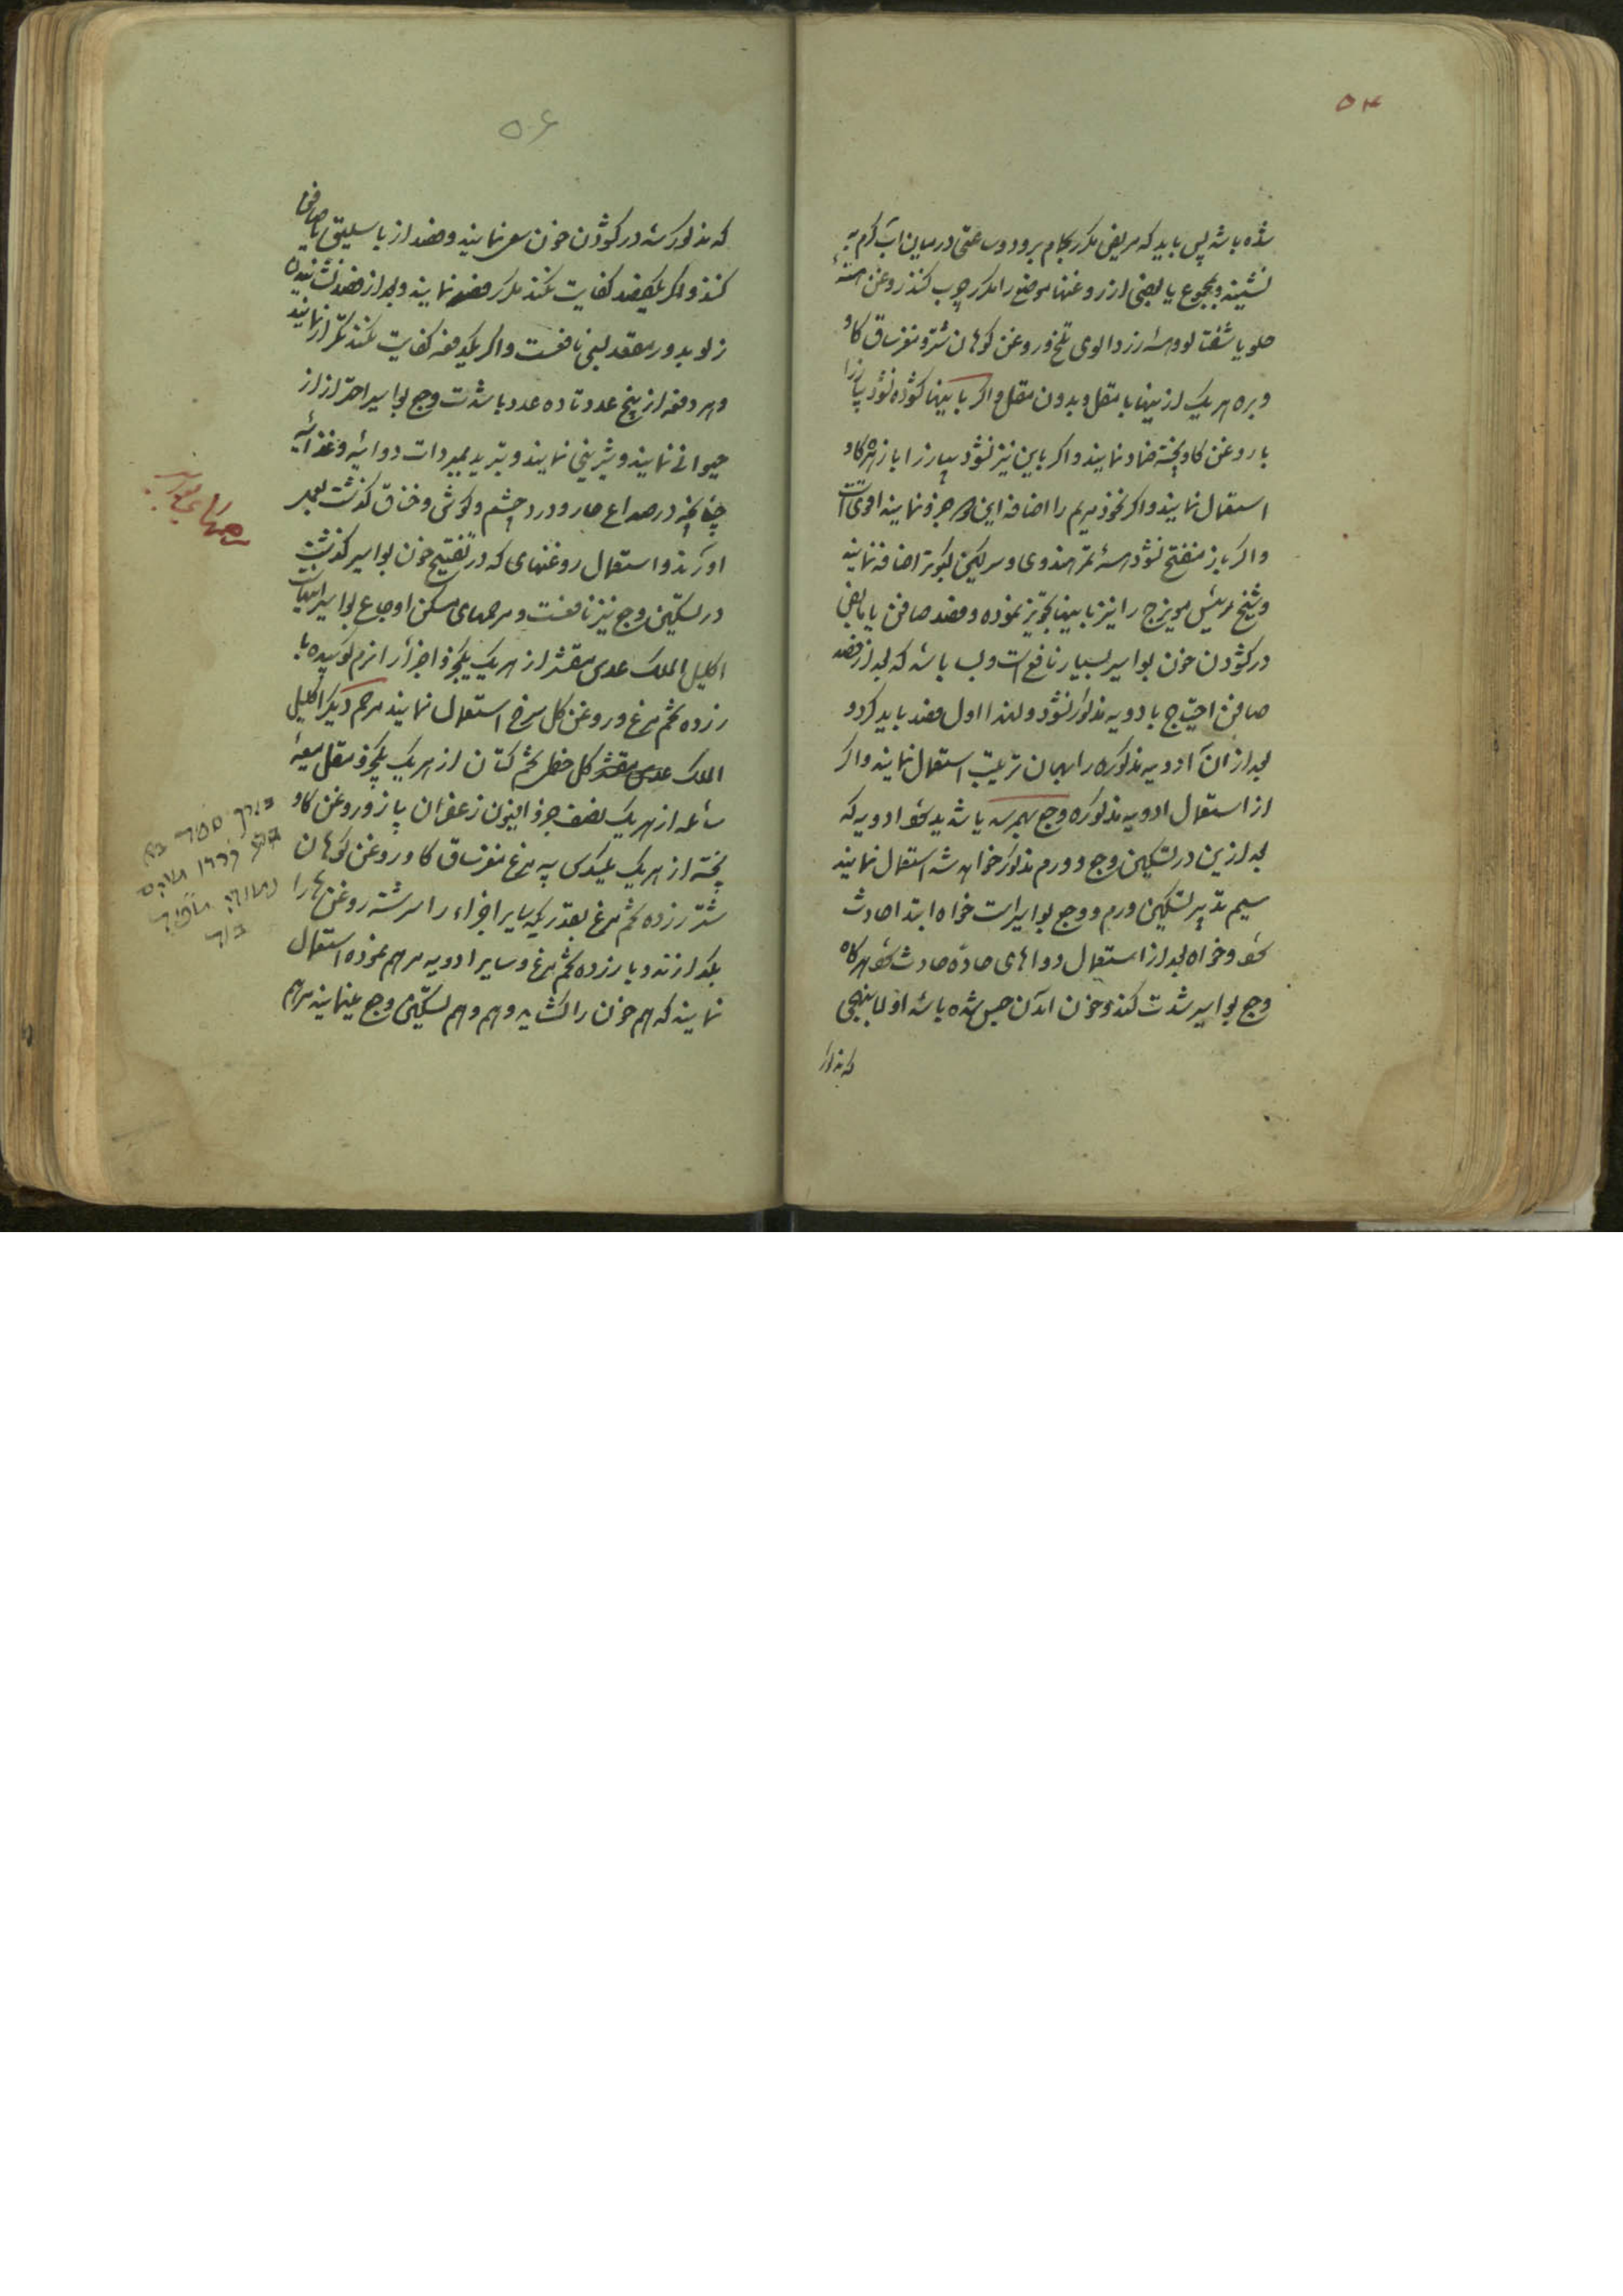 ۵۴
شده باشد پس باید که مریض مکرر بحمام برود و ساعتی در میان آب گرم
نشیند و بمجموع یا بعضی از روغنها موضع را مکرر چرب کند روغن هسته
حلو یا شفتالو و هسته زردالوی تلخ و روغن کوهان شتر و مغز ساق کاو
و بره هریک ازینها با مقل و بدون مقل و اکر باینها کشوده نشود پیاز را
با روغن کاو پخته ضماد نمایند و اکر باین نیز نشود پیاز را با زهره کاو
استعمال نمایند و اکر بخور مریم را اضافه این جزو نمایند اقوی است
و اکر باز منفتح نشود هسته تمر هندوی و سرکین کبوتر اضافه نمایند
و شیخ رئیس مویزج را نیز باینها تجویز نموده و فصد صافن یا مابض
در کشودن خون بواسیر بسیار نافع است و بسا باشد که بعد از فصد
صافن احتیاج بادویه مذکور نشود و لهذا اول فصد باید کرد و
بعد از آن ادویه مذکوره را بهمان ترتیب استعمال نمایند و اکر
از استعمال ادویه مذکوره وجع بهم رسد باشد بدستور ادویه که
بعد ازین در تسکین وجع و ورم مذکور خواهد شد استعمال نمایند
سیم تدبیر تسکین ورم و وجع بواسیر است خواه ابتدا حادث
شود و خواه بعد از استعمال دواهای حاده حادث شود هرکاه
وجع بواسیر شدت کند و خون آمدن حبس شده باشد اولا بنهجی
که مذکور
۵۶
که مذکور شد در کشودن خون سعی نمایند و فصد از باسلیق یا صافن
کنند و اکر یک فصد کفایت نکند مکرر فصد نمایند و بعد از فصد
زلو بدور مقعد بسی نافعست و اکر یکدفعه کفایت نکند تکرار نمایند
و هر دفعه از پنج عدد تا ده عدد با شدت وجع بواسیر احتراز از
حیوانی نمایند و شیرینی نمایند و تبرید بمبردات دوائیه و غذائیه
چنانچه در صداع حار و درد چشم و کوش و خناق کذشت بعمل
آورند و استعمال روغنهای که در تفتیح خون بواسیر کذشت
در تسکین وجع نیز نافعست و مرهمهای مسکن اوجاع بواسیر اینهاست
اکلیل الملک عدس مقشر از هریک یکجزو اجزا را نرم کوبیده با
زرده تخم مرغ و روغن کل سرخ استعمال نمایند مرهم دیکر اکلیل
الملک عدس مقشر کل خطمی تخم کتان از هریک یکجزو مقل میعه
سائله از هریک نصف جزو افیون زعفران پیاز و روغن کاو
پخته از هریک سدس پیه مرغ مغز ساق کاو روغن کوهان
شتر زرده تخم مرغ بقدریکه سایر اجزاء را سرشته روغنها را
بکدازند و با زرده تخم مرغ و سایر ادویه مرهم نموده استعمال
نمایند که هم خون را کشاید و هم و هم تسکین وجع مینمایند مرهم